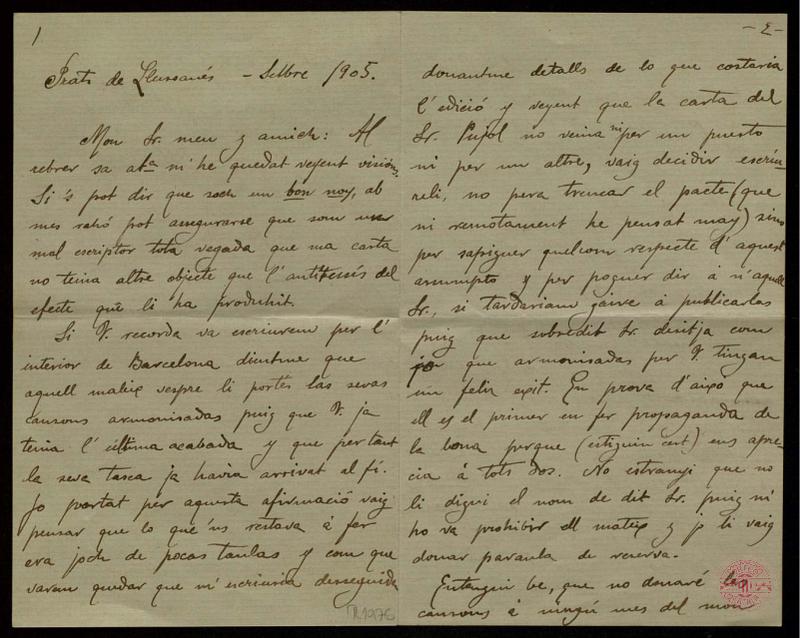 1
Prats de Llussanés – Setbre 1905.
Mon Sr. meu y amich: Al
rebrer sa atª m'he quedat veyent visions.
Si 's pot dir que soch un bon noy, ab
mes rahó pot assegurarse que som un
mal escriptor tota vegada que ma carta
no tenia altre objecte que l'antitessis del
efecte que li ha produhit.
Si V. recorda va escriurem per l'
interior de Barcelona dientme que
aquell mateix vespre li portés las sevas
cansons armonisadas puig que V. ja
tenia l'última acabada y que per tant
la seva tasca ja havia arrivat al fi.
Jo portat per aquesta afirmació vaig
pensar que lo que 'ns restava á fer
era joch de pocas taulas y com que
varem quedar que m'escriuria desseguida
– 2 –
donantme detalls de lo que costaria
l'edició y veyent que la carta del
Sr. Pujol no venia ni per un puesto
ni per un altre, vaig decidir escriu-
reli, no pera trencar el pacte (que
ni remotament he pensat may) sino
per sapiguer quelcom respecte d'aquest
assumpto y per poguer dir á n'aquell
Sr., si tardariam gaire á publicarlas
puig que subsedit Sr. desitja com
jo que armonisadas per V. tingan
un felis exit. En prova d'aixo que
ell es el primer en fer propaganda de
la bona perque (estiguin cert) ens apre-
cia á tots dos. No estranyi que no
li digui el nom de dit Sr. puig m'
ho va prohibir ell mateix y jo li vaig
donar paraula de reserva.
Entengui be, que no donaré las
cansons á ningú mes del mon
R.1976